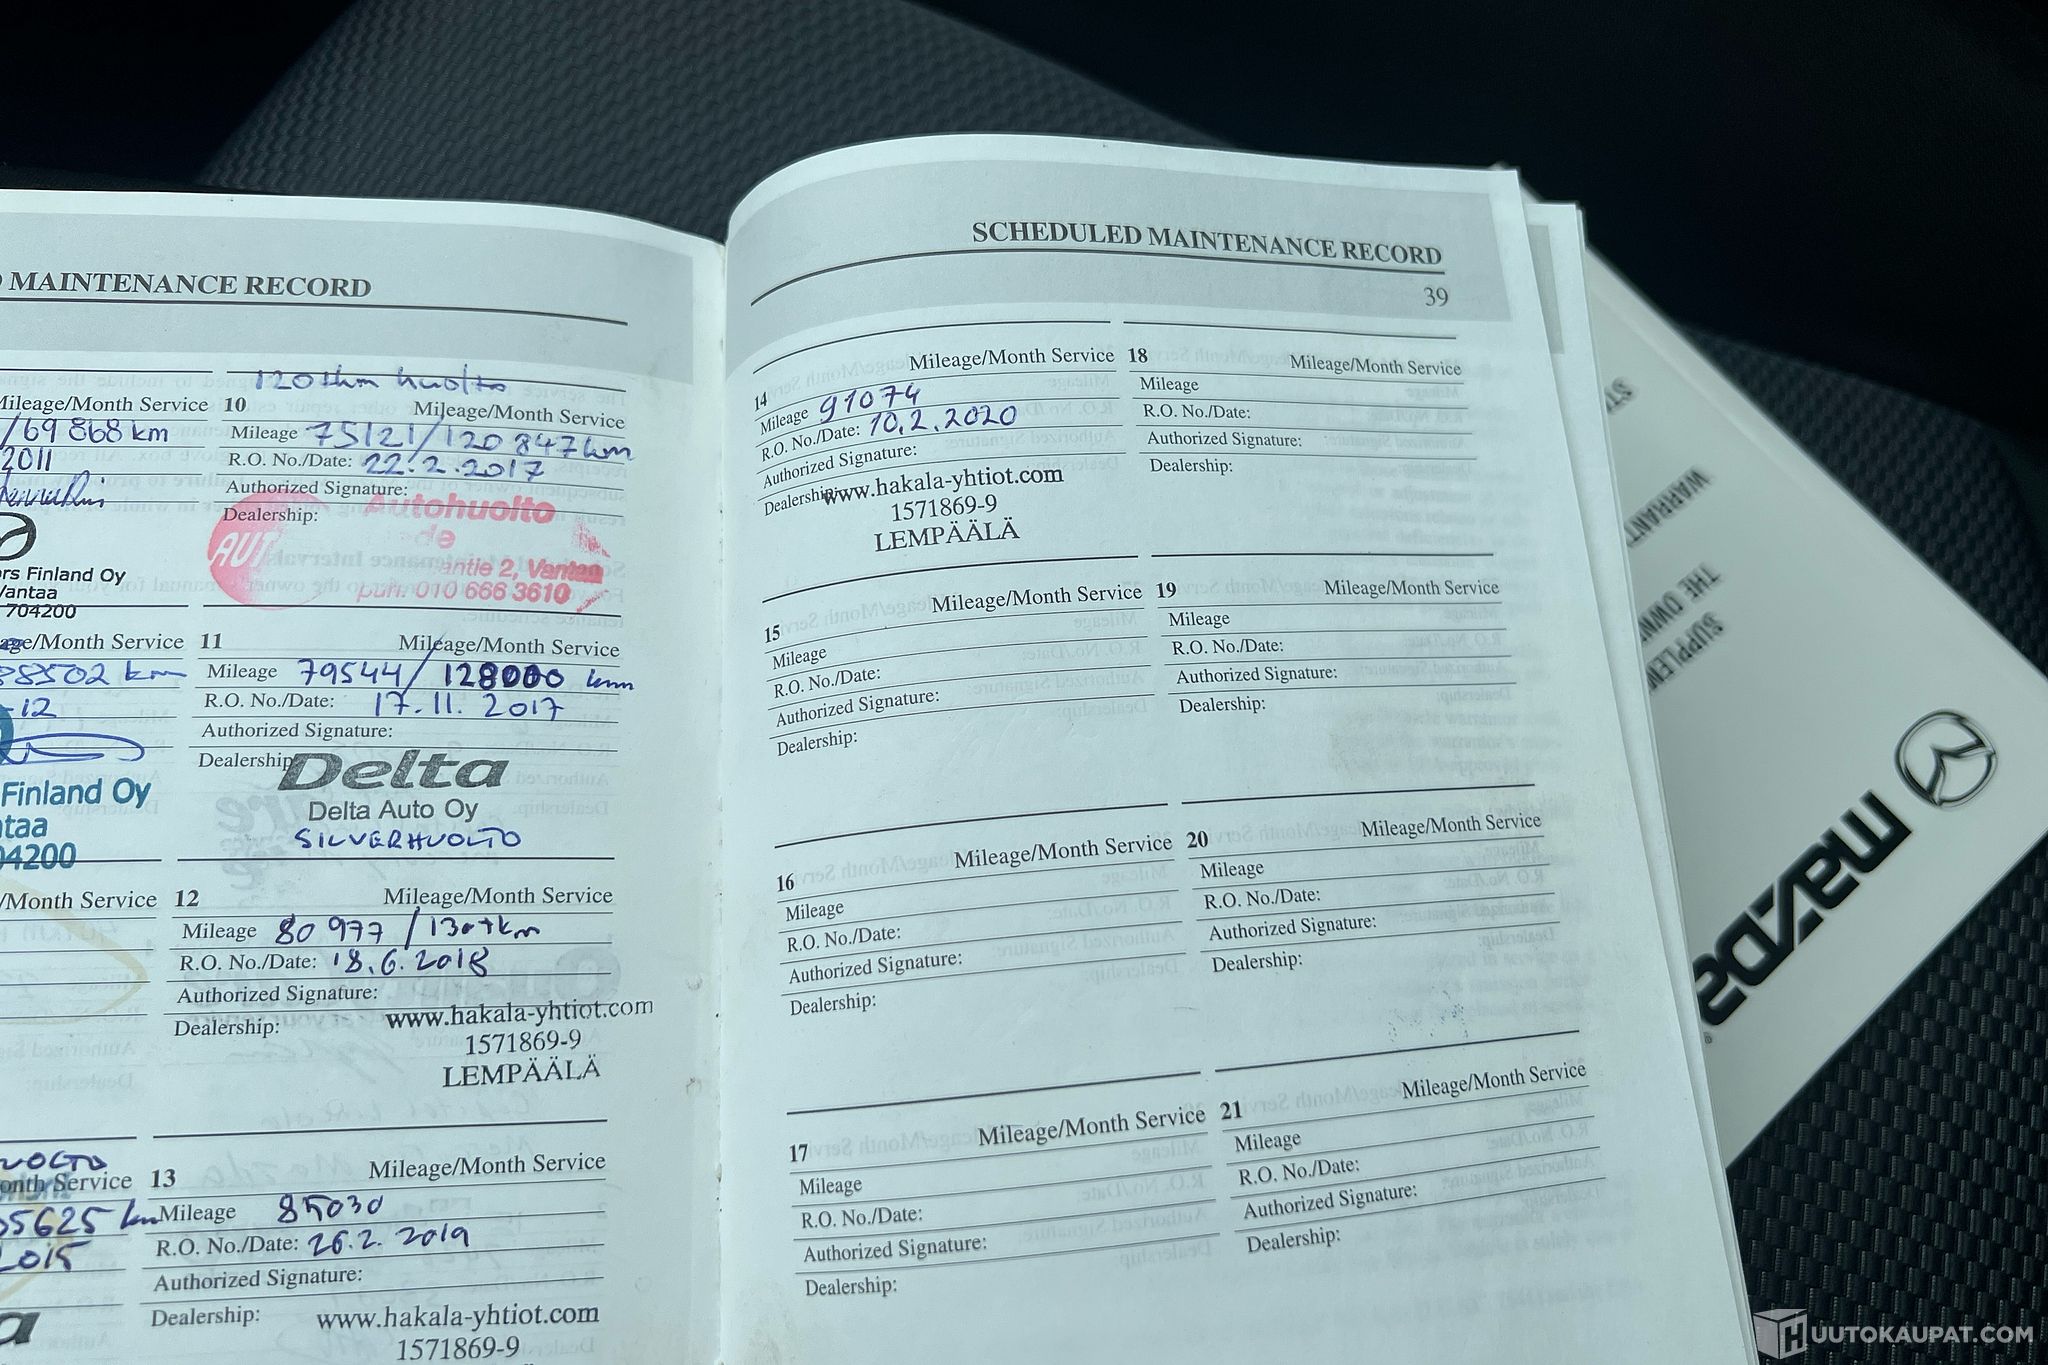 MAINTENANCE RECORD
Mileage/Month Service
/69 868 km
2011
rs Finland Oy
Vantaa
704200
Mileage/Month Service
88502 km
-12
Finland Oy
taa
04200
/Month Service
onth Service
5625 km
2015
120tkm huolto
10 Mileage/Month Service
Mileage 75121/120 847 km
R.O. No./Date: 22.2.2017
Authorized Signature:
Dealership: Autohuolto
AUT de
antie 2, Vantaa
puh. 010 666 3610
11 Mileage/Month Service
Mileage 79544/128000 km
R.O. No./Date: 17.11.2017
Authorized Signature:
Dealership:
Delta
Delta Auto Oy
SILVERHUOLTO
12 Mileage/Month Service
Mileage 80 977 /130tkm
R.O. No./Date: 18.6.2018
Authorized Signature:
Dealership: www.hakala-yhtiot.com
1571869-9
LEMPÄÄLÄ
13 Mileage/Month Service
Mileage 85030
R.O. No./Date: 26.2.2019
Authorized Signature:
Dealership: www.hakala-yhtiot.com
1571869-9
SCHEDULED MAINTENANCE RECORD
39
14 Mileage/Month Service
Mileage 91074
R.O. No./Date: 10.2.2020
Authorized Signature:
Dealership: www.hakala-yhtiot.com
1571869-9
LEMPÄÄLÄ
15 Mileage/Month Service
Mileage
R.O. No./Date:
Authorized Signature:
Dealership:
16 Mileage/Month Service
Mileage
R.O. No./Date:
Authorized Signature:
Dealership:
17 Mileage/Month Service
Mileage
R.O. No./Date:
Authorized Signature:
Dealership:
18 Mileage/Month Service
Mileage
R.O. No./Date:
Authorized Signature:
Dealership:
19 Mileage/Month Service
Mileage
R.O. No./Date:
Authorized Signature:
Dealership:
20 Mileage/Month Service
Mileage
R.O. No./Date:
Authorized Signature:
Dealership:
21 Mileage/Month Service
Mileage
R.O. No./Date:
Authorized Signature:
Dealership:
WARRANT
THE OWN
SUPPLEM
mazda
HUUTOKAUPAT.COM